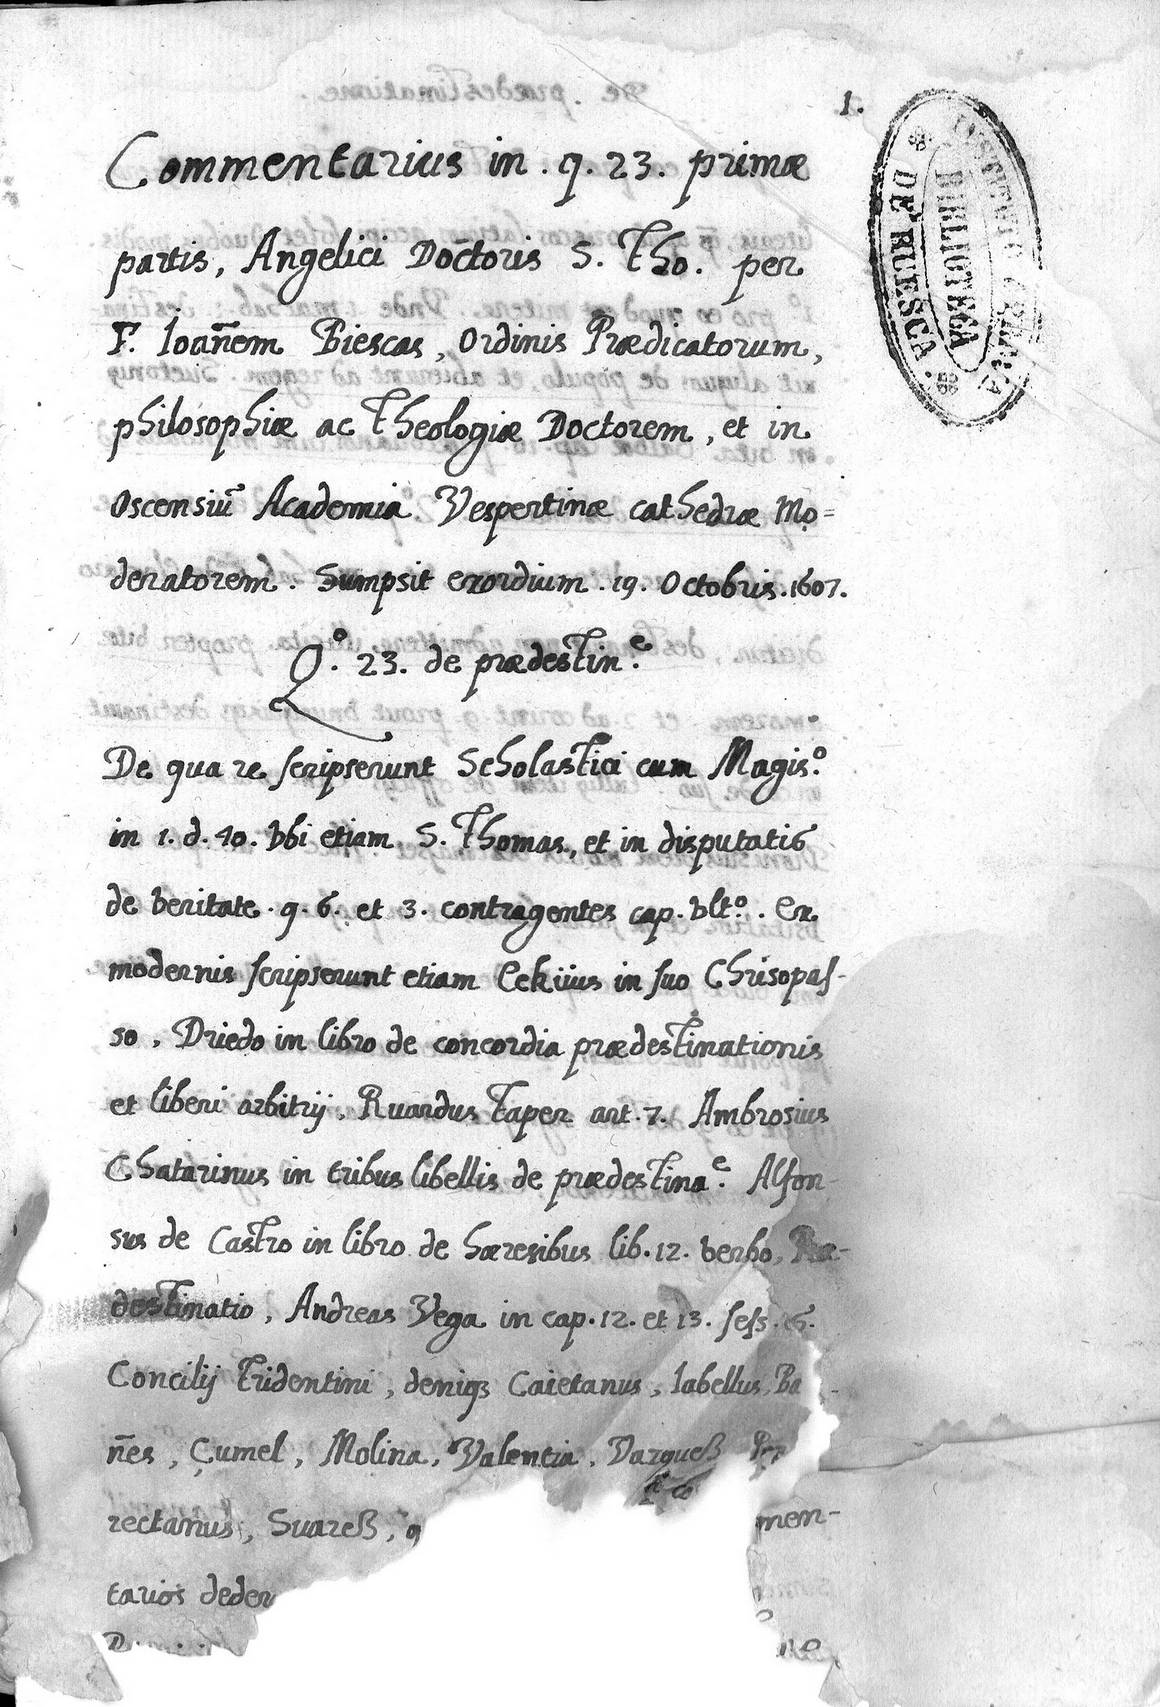 1.
INSTITUTO
BIBLIOTECA
DE HUESCA.
Commentarius in . q . 23 . primæ
partis, Angelici Doc̄toris S. Tho. per
F. Ioan̄em Biescas, Ordinis Prædicatorum,
philosophiæ ac Theologiæ Doctorem, et in
Oscensiū Academia Vespertinæ cathedræ Mo=
deratorem. Sumpsit exordium . 19. Octobris . 1607.
Q.º 23. de prædestin.e
De qua re scripserunt Scholastici cum Magis.º
in 1. d. 40. Vbi etiam S. Thomas, et in disputatis
de veritate . q. 6. et 3. contragentes cap. vlt.º . Ex
modernis scripserunt etiam Eekiius in suo Chrisopas-
so, Driedo in libro de concordia prædestinationis
et liberi arbitrij, Ruardus Taper art. 7. Ambrosius
Chatarinus in tribus libellis de prædestina.e Alfon-
sus de Castro in libro de hæresibus lib. 12. verbo, Præ-
destinatio, Andreas Vega in cap. 12. et 13. sess. 6.
Concilij Tridentini, deniq3 Caietanus, Iabellus, Ba-
n̄es, Çumel, Molina, Valentia, Vazqueß
rectanus, Suareß, men-
tarios deder